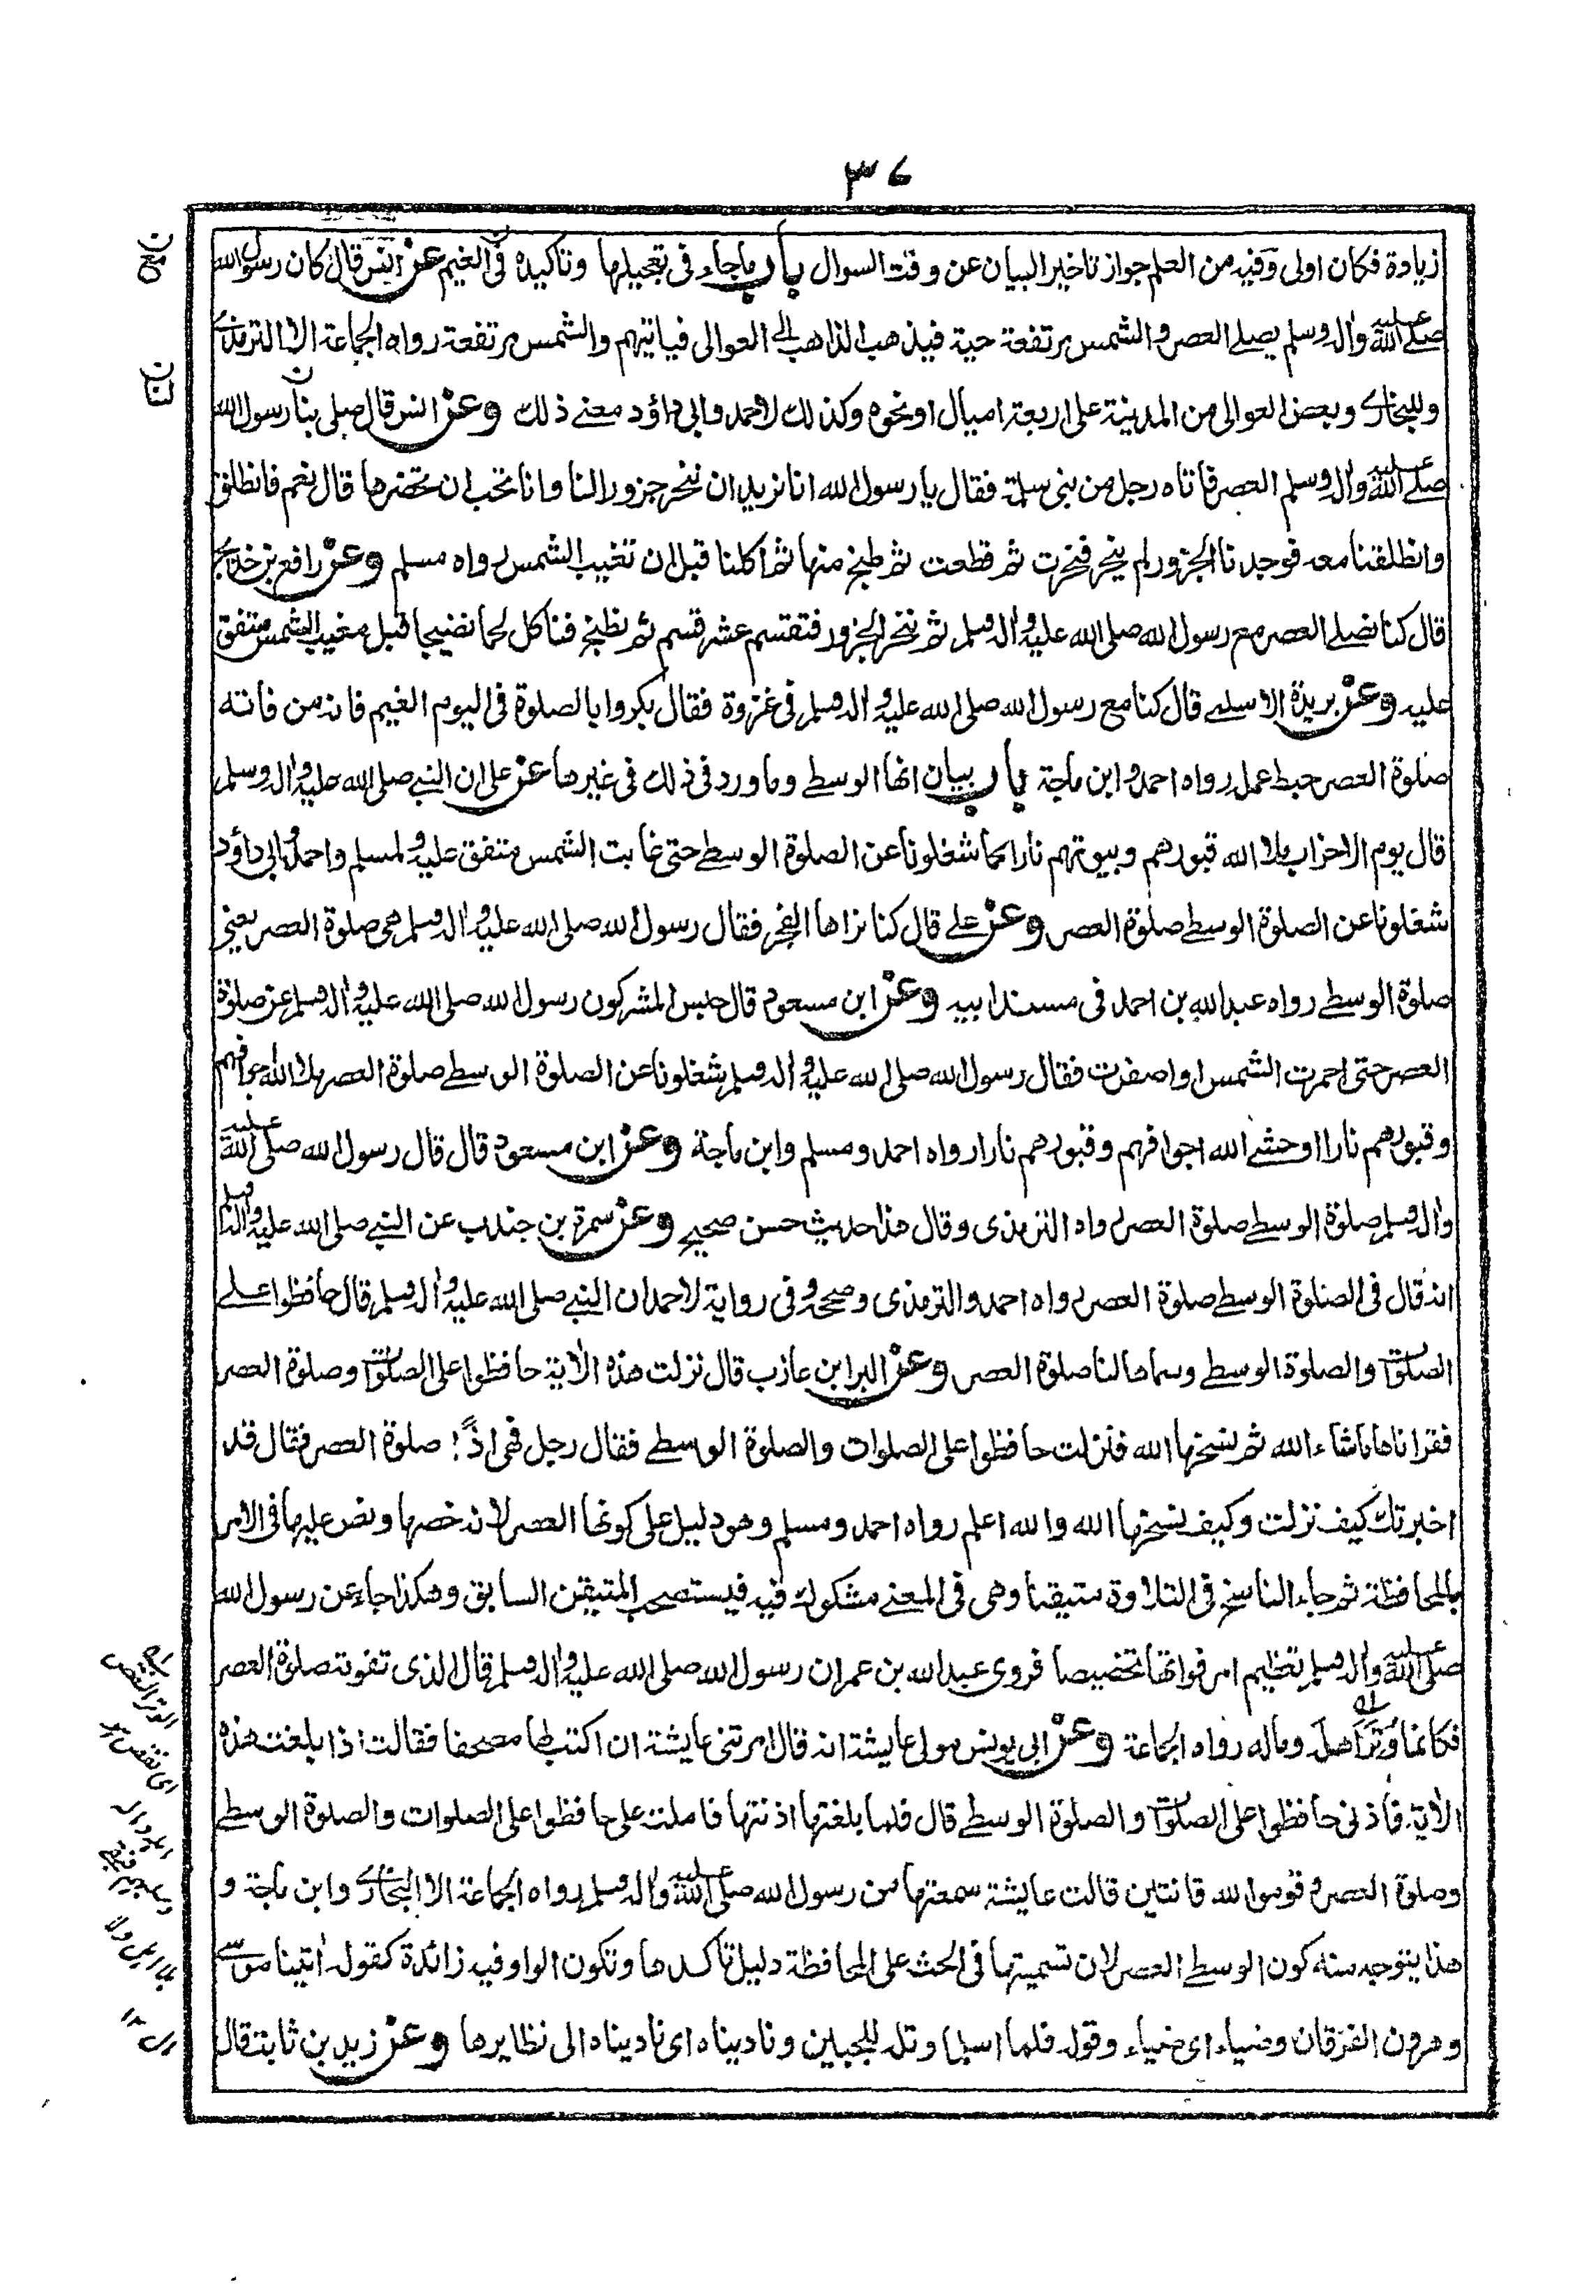 ٣٤
زيادة فكان اولى وفيه من العلم جواز تاخير البيان عن وقت السوال باب ماجاء في تعجيلها وتاكيده في الغيم عن انس قال كان رسول الله
صلى الله عليه واله وسلم يصلي العصر والشمس مرتفعة حية فيذهب الذاهب الى العوالي فياتيهم والشمس مرتفعة رواه الجماعة الا الترمذي
وللبخاري وبعض العوالي من المدينة على اربعة اميال او نحوه وكذلك لاحمد وابي داؤد معنى ذلك وعن انس قال صلى بنا رسول الله
صلى الله عليه واله وسلم العصر فاتاه رجل من بني سلمة فقال يا رسول الله انا نريد ان ننحر جزورا لنا وانا نحب ان تحضرها قال نعم فانطلق
وانطلقنا معه فوجدنا الجزور لم ينحر فنحرت ثم قطعت ثم طبخ منها ثم اكلنا قبل ان تغيب الشمس رواه مسلم وعن رافع بن خديج
قال كنا نصلي العصر مع رسول الله صلى الله عليه واله وسلم ثم ننحر الجزور فتقسم عشر قسم ثم نطبخ فناكل لحما نضيجا قبل مغيب الشمس متفق
عليه وعن بريدة الاسلمي قال كنا مع رسول الله صلى الله عليه واله وسلم في غزوة فقال بكروا بالصلوة في اليوم الغيم فانه من فاته
صلوة العصر حبط عمله رواه احمد وابن ماجة باب بيان انها الوسطى وما ورد في ذلك في غيرها عن علي ان النبي صلى الله عليه واله وسلم
قال يوم الاحزاب ملا الله قبورهم وبيوتهم نارا كما شغلونا عن الصلوة الوسطى حتى غابت الشمس متفق عليه ولمسلم واحمد وابي داؤد
شغلونا عن الصلوة الوسطى صلوة العصر وعن علي قال كنا نراها الفجر فقال رسول الله صلى الله عليه واله وسلم هي صلوة العصر يعني
صلوة الوسطى رواه عبد الله بن احمد في مسند ابيه وعن ابن مسعود قال حبس المشركون رسول الله صلى الله عليه واله وسلم عن صلوة
العصر حتى احمرت الشمس او اصفرت فقال رسول الله صلى الله عليه واله وسلم شغلونا عن الصلوة الوسطى صلوة العصر ملا الله اجوافهم
وقبورهم نارا او حشى الله اجوافهم وقبورهم نارا رواه احمد ومسلم وابن ماجة وعن ابن مسعود قال قال رسول الله صلى الله عليه
واله وسلم صلوة الوسطى صلوة العصر رواه الترمذي وقال هذا حديث حسن صحيح وعن سمرة بن جندب عن النبي صلى الله عليه واله وسلم
انه قال في الصلوة الوسطى صلوة العصر رواه احمد والترمذي وصححه وفي رواية لاحمد ان النبي صلى الله عليه واله وسلم قال حافظوا على
الصلوت والصلوة الوسطى وسماها لنا صلوة العصر وعن البرا بن عازب قال نزلت هذه الاية حافظوا على الصلوت وصلوة العصر
فقرأناها ماشاء الله ثم نسخها الله فنزلت حافظوا على الصلوات والصلوة الوسطى فقال رجل فهي اذاً صلوة العصر فقال قد
اخبرتك كيف نزلت وكيف نسخها الله والله اعلم رواه احمد ومسلم وهو دليل على كونها العصر لانه خصها ونص عليها في الامر
بالمحافظة ثم جاء الناسخ في التلاوة متيقنا وهي في المعنى مشكوك فيه فيستصحب المتيقن السابق وهكذا جاء عن رسول الله
صلى الله عليه واله وسلم تعظيم امر فواتها تخصيصا فروى عبد الله بن عمر ان رسول الله صلى الله عليه واله وسلم قال الذي تفوته صلوة العصر
فكانما وتر اهله وماله رواه الجماعة وعن ابي يونس مولى عايشة انه قال امرتني عايشة ان اكتب لها مصحفا فقالت اذا بلغت هذه
الاية فاذني حافظوا على الصلوت والصلوة الوسطى قال فلما بلغتها اذنتها فاملت علي حافظوا على الصلوات والصلوة الوسطى
وصلوة العصر وقوموا لله قانتين قالت عايشة سمعتها من رسول الله صلى الله عليه واله وسلم رواه الجماعة الا البخاري وابن ماجة و
هذا يتوجه منه كون الوسطى العصر لان تسميتها في الحث على المحافظة دليل تاكدها وتكون الواو فيه زائدة كقوله اتينا موسى
وهرون الفرقان وضياء اي ضياء وقوله فلما اسلما وتله للجبين وناديناه اي ناديناه الى نظايرها وعن زيد بن ثابت قال
لنا